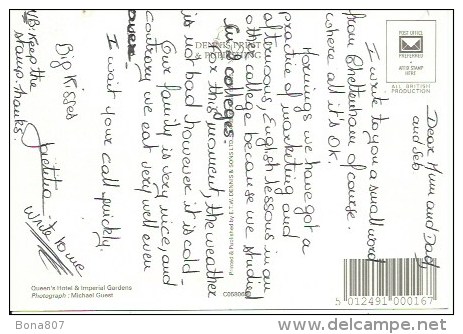 Dear Mum and Dady
and Seb
I write to you a small word
from Cheltenham of course.
where all it's OK.
Mornings we have got a
practice of marketing and
afternoons, English lessons in an
other college because we studied
in 2 colleges -
For this moment, the weather
is not bad however it is cold -
Our family is very nice, and
contrary we eat very well even
I wait your call quickly.
Big Kisses
Laetitia
write home
NB: Keep the
stamp. Thanks.
DENNIS PRINT
& PUBLISHING
POST OFFICE
PREFERRED
AFFIX STAMP
HERE
ALL BRITISH
PRODUCTION
Printed & Published by E.T.W. DENNIS & SONS LTD.
Queen's Hotel & Imperial Gardens
Photograph : Michael Guest
5 012491 000167
Bona807
delcampe.net